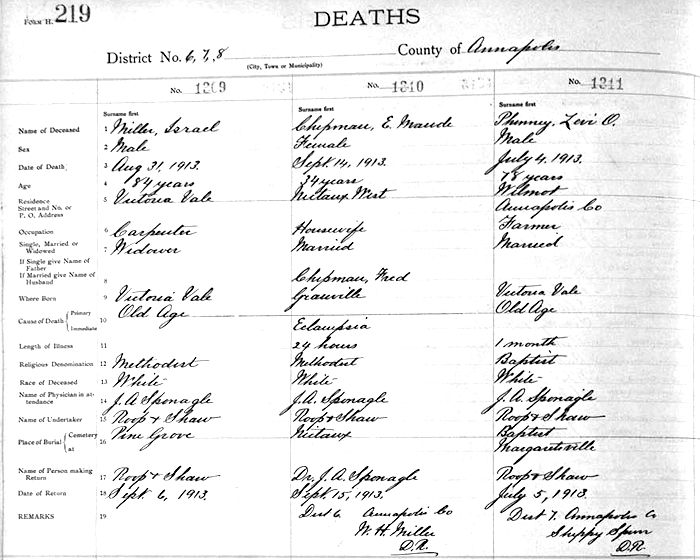 FORM H. 219
DEATHS
District No. 6, 7, 8 County of Annapolis
(City, Town or Municipality)
No. 1309 No. 1310 No. 1311
Surname first Surname first Surname first
Name of Deceased 1 Miller, Israel Chipman, E. Maude Phinney, Levi O.
Sex 2 Male Female Male
Date of Death 3 Aug 31, 1913. Sept. 14, 1913. July 4, 1913.
Age 4 84 years 34 years 78 years
Residence 5 Victoria Vale Nictaux West Wilmot
Street and No. or
P. O. Address Annapolis Co
Occupation 6 Carpenter Housewife Farmer
Single, Married or Widowed 7 Widower Married Married
If Single give Name of Father
If Married give Name of Husband 8 Chipman, Fred
Where Born 9 Victoria Vale Granville Victoria Vale
Cause of Death Primary 10 Old Age Old Age
Immediate Eclampsia
Length of Illness 11 24 hours 1 month
Religious Denomination 12 Methodist Methodist Baptist
Race of Deceased 13 White White White
Name of Physician in attendance 14 J. A. Sponagle J. A. Sponagle J. A. Sponagle
Name of Undertaker 15 Roop & Shaw Roop & Shaw Roop & Shaw
Place of Burial Cemetery at 16 Pine Grove Nictaux Baptist
Margaretsville
Name of Person making Return 17 Roop & Shaw Dr. J. A. Sponagle Roop & Shaw
Date of Return 18 Sept. 6, 1913. Sept. 15, 1913. July 5, 1913.
REMARKS 19 Dist 6 Annapolis Co Dist 7. Annapolis Co
W. H. Miller Shippy Spurr
D.R. D.R.